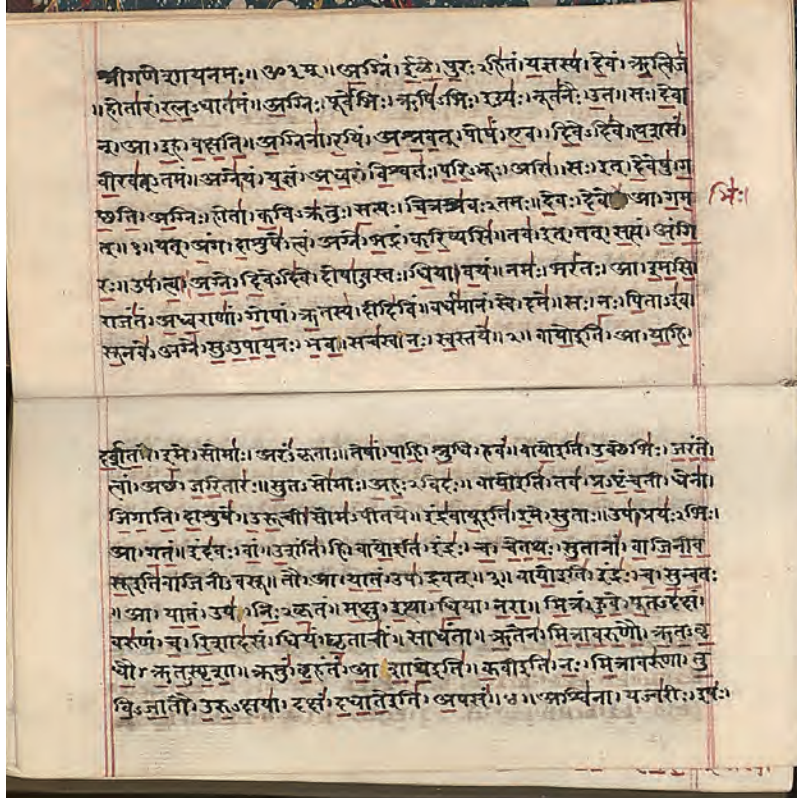 श्रीगणेशायनमः॥ॐ३म्॥अग्निं।ईळे।पुरःऽहितं।यज्ञस्य।देवं।ऋत्विजं
॥होतारं।रत्नऽधातमं॥अग्निः।पूर्वेभिः।ऋषिऽभिः।ईड्यः।नूतनैः।उत॥सः।देवा
न्।आ।इह।वक्षति॥अग्निना।रयिं।अश्नवत्।पोषं।एव।दिवेऽदिवे॥यशसं।
वीरवत्ऽतमं॥अग्ने।यं।यज्ञं।अध्वरं।विश्वतः।परिऽभूः।असि॥सः।इत्।देवेषु।ग
च्छति।अग्निः।होता।कविऽक्रतुः।सत्यः।चित्रश्रवःऽतमः॥देवः।देवे आ।गम
त्॥१॥यत्।अंग।दाशुषे।त्वं।अग्ने।भद्रं।करिष्यसि॥तव।इत्।तत्।सत्यं।अंगि
रः॥उप।त्वा।अग्ने।दिवेऽदिवे।दोषाऽवस्तः।धिया।वयं॥नमः।भरंतः।आ।इमसि॥
राजंतं।अध्वराणां।गोपां।ऋतस्य।दीदिविं॥वर्धमानं।स्वे।दमे॥सः।नः।पिताऽइव।
सूनवे।अग्ने।सुऽउपायनः।भव॥सचस्व।नः।स्वस्तये॥२॥वायोइति।आ।याहि।
दर्शत।इमे।सोमाः।अरंऽकृताः॥तेषां।पाहि।श्रुधि।हवं॥वायोइति।उक्थेभिः।जरंते।
त्वां।अच्छ।जरितारः॥सुतऽसोमाः।अहःऽविदः॥वायोइति।तव।प्रऽपृंचती।धेना।
जिगाति।दाशुषे॥उरूची।सोमऽपीतये॥इंद्रवायूइति।इमे।सुताः॥उप।प्रयःऽभिः।
आ।गतं॥इंदवः।वां।उशंति।हि॥वायोइति।इंद्रः।च।चेतथः।सुतानां।वाजिनीव
सूइतिवाजिनीऽवसू॥तौ।आ।यातं।उप।द्रवत्॥३॥वायोइति।इंद्रः।च।सुन्वतः
॥आ।यातं।उप।निःऽकृतं॥मक्षु।इत्था।धिया।नरा॥मित्रं।हुवे।पूतऽदक्षं।
वरुणं।च।रिशादसं॥धियं।घृताचीं।साधंता॥ऋतेन।मित्रावरुणौ।ऋतऽवृ
धौ।ऋतऽस्पृशा॥क्रतुं।बृहंतं।आशाथेइति॥कवीइति।नः।मित्रावरुणा।तु
विऽजातौ।उरुऽक्षया॥दक्षं।दधातेइति।अपसं॥४॥अश्विना।यज्वरीः।इषः।
भिः।